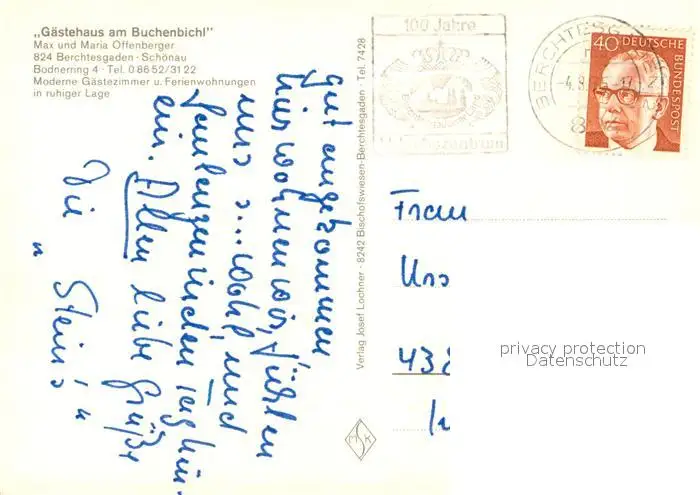 „Gästehaus am Buchenbichl"
Max und Maria Offenberger
824 Berchtesgaden - Schönau
Bodnerring 4 · Tel. 0 86 52/31 22
Moderne Gästezimmer u. Ferienwohnungen
in ruhiger Lage
gut angekommen
hier wohnen wir, fühlen
uns s...wohl und
faulenzen in den Tag hin-
ein. Allen liebe Grüße
Die
" Stein's "
Verlag Josef Lochner · 8242 Bischofswiesen-Berchtesgaden · Tel. 7428
MSK
100 Jahre
BERCHTESGADEN
40 DEUTSCHE
BUNDESPOST
Frau
Urs
432
privacy protection
Datenschutz